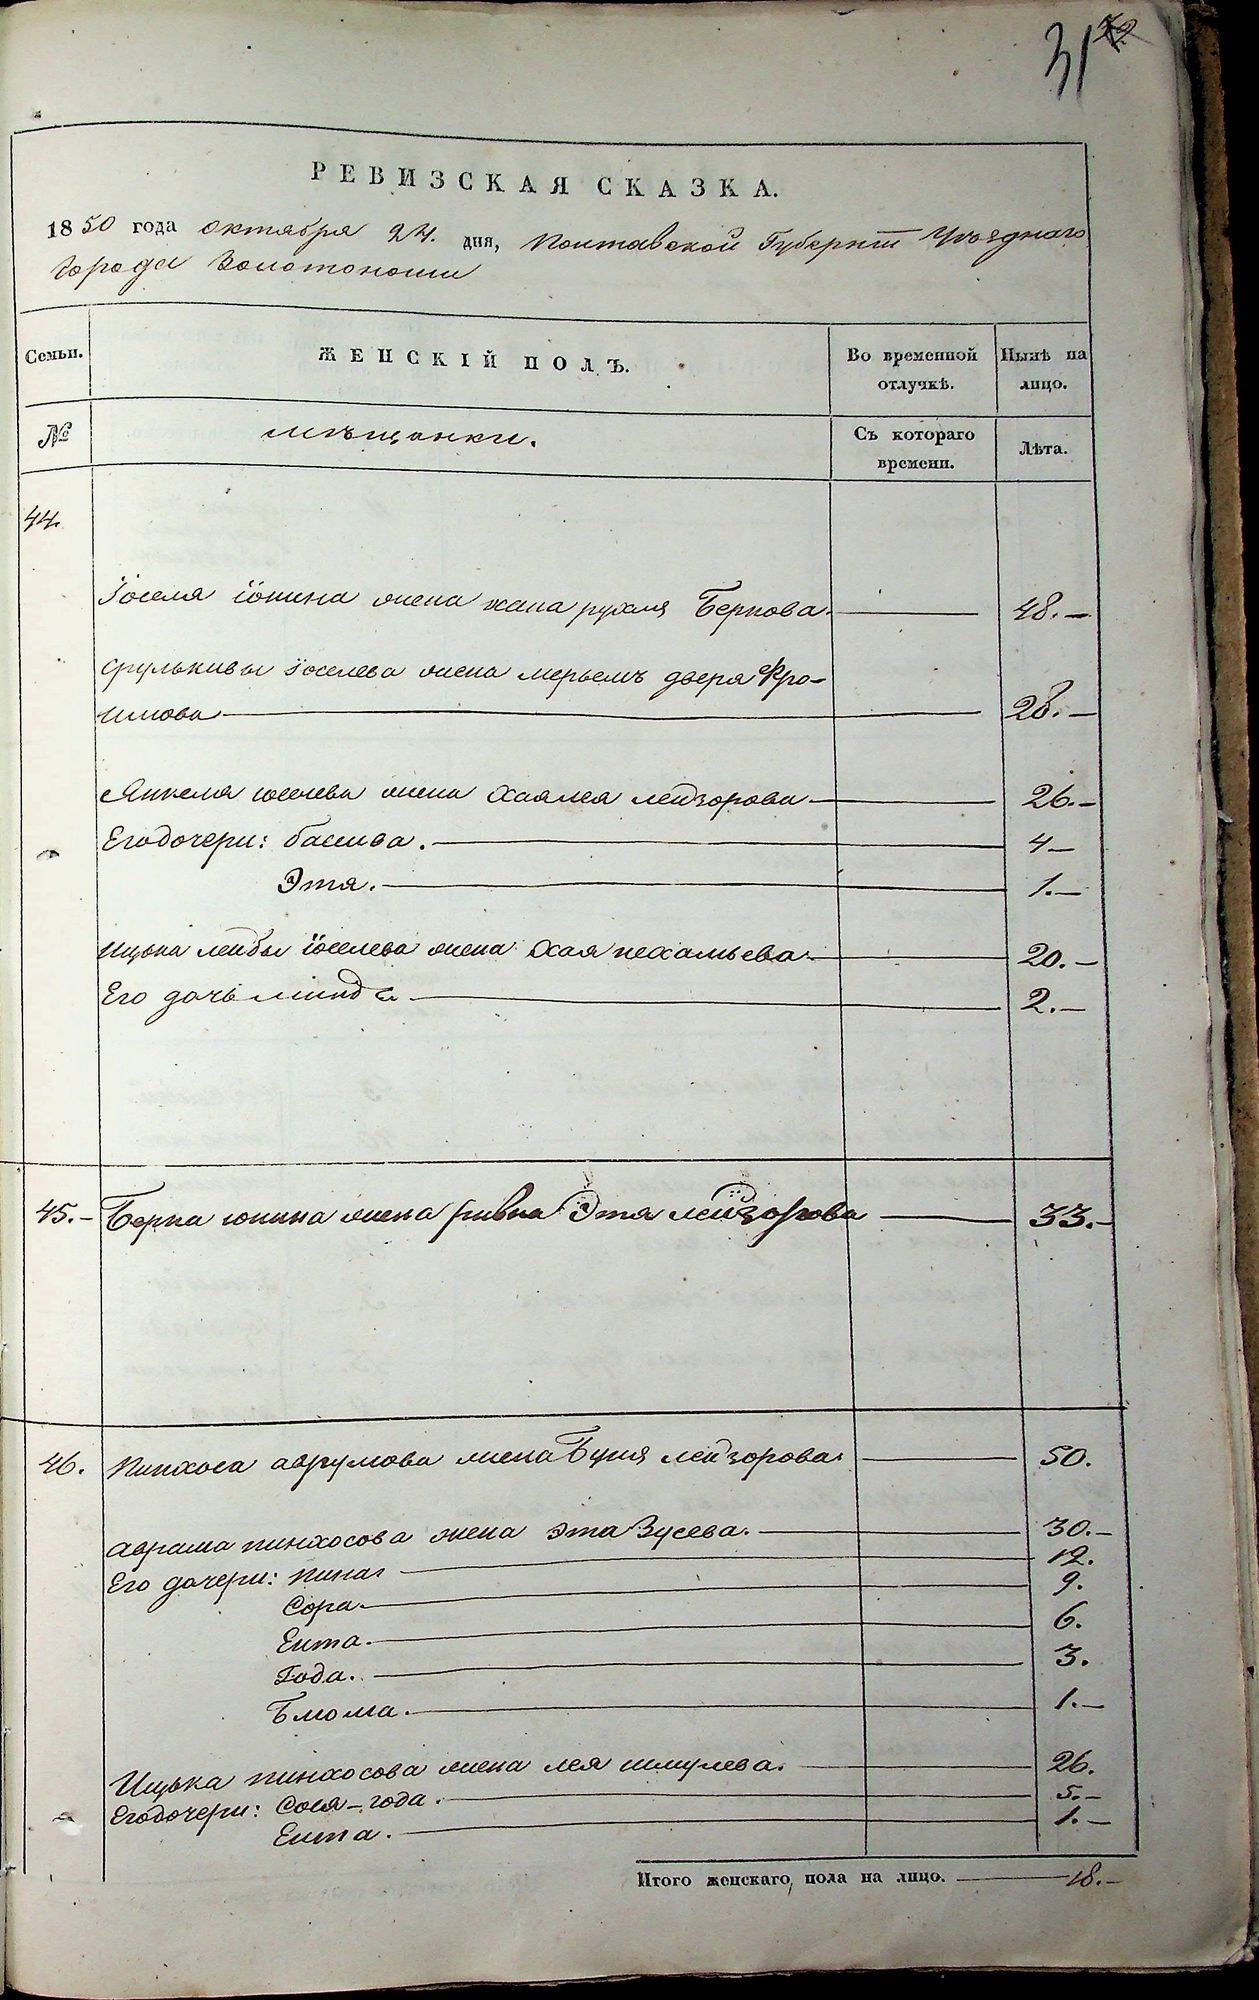 31
РЕВИЗСКАЯ СКАЗКА.
1850 года октября 24. дня, Полтавской Губернiи Уѣзднаго
города Золотоноши
Семьи.
ЖЕНСКІЙ ПОЛЪ.
Во временной отлучкѣ.
Нынѣ на лицо.
№
мѣщанки.
Съ котораго времени.
Лѣта.
44.
Іоселя іонина жена хана рухля Беркова. 48.
Срулькивы іоселева жена мерьемъ двера Фро-
имова 28.
Янкеля іоселева жена Хаялея лейзорова 26.
Его дочери: басшва. 4
Этя. 1.
Ицька лейбы іоселева жена Хая нехамьева 20.
Его дочь минда 2.
45. Берка іонина жена ривка Этя лейзорова 33.
46. Пинхоса аврумова жена Буня лейзорова 50.
аврама пинхосова жена эта Зусева. 30.
Его дочери: 12.
Сора 9.
Ента. 6.
Года. 3.
Блюма. 1.
Ицька пинхосова жена лея шмулева. 26.
Его дочери: Сося-года. 5.
Ента. 1.
Итого женскаго пола на лицо. 18.